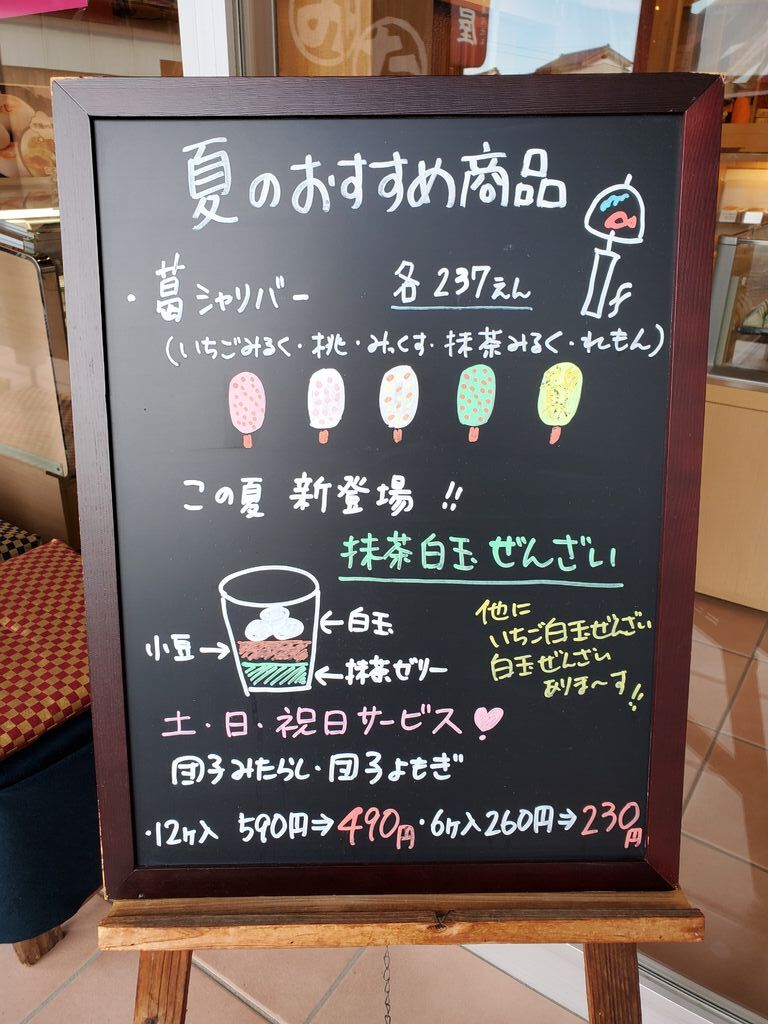 夏のおすすめ商品
・葛シャリバー 各237えん
(いちごみるく・桃・みっくす・抹茶みるく・れもん)
この夏 新登場!!
抹茶白玉ぜんざい
←白玉
小豆→
←抹茶ゼリー
他に
いちご白玉ぜんざい
白玉ぜんざい
ありま〜す!!
土・日・祝日サービス
団子みたらし・団子よもぎ
・12ヶ入 590円⇒490円・6ヶ入260円⇒230円